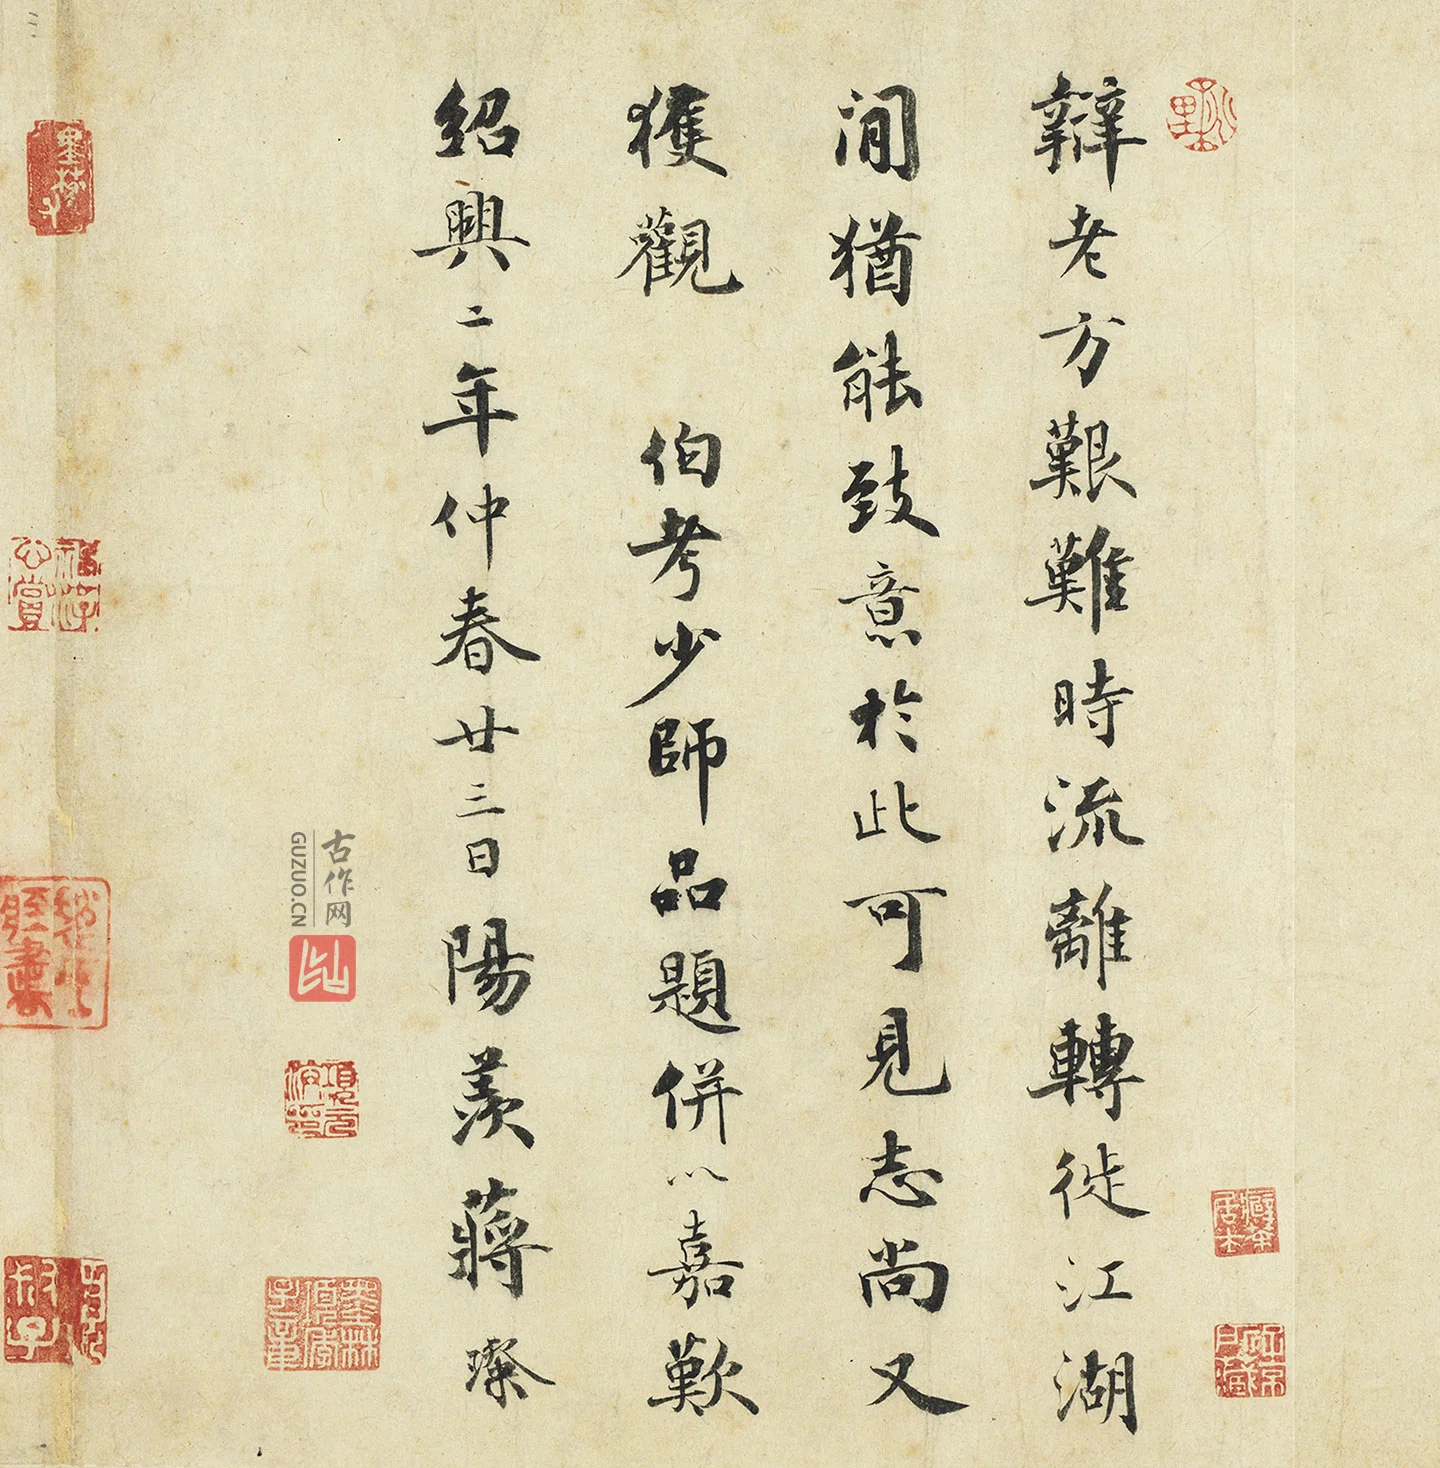 辯老方艱難時流離轉徙江湖
間猶能致意於此可見志尚又
獲觀 伯考少師品題併以嘉歎
紹興二年仲春廿三日陽羨蔣璨
古作网
GUZUO.CN
項元汴印
墨林項季子章